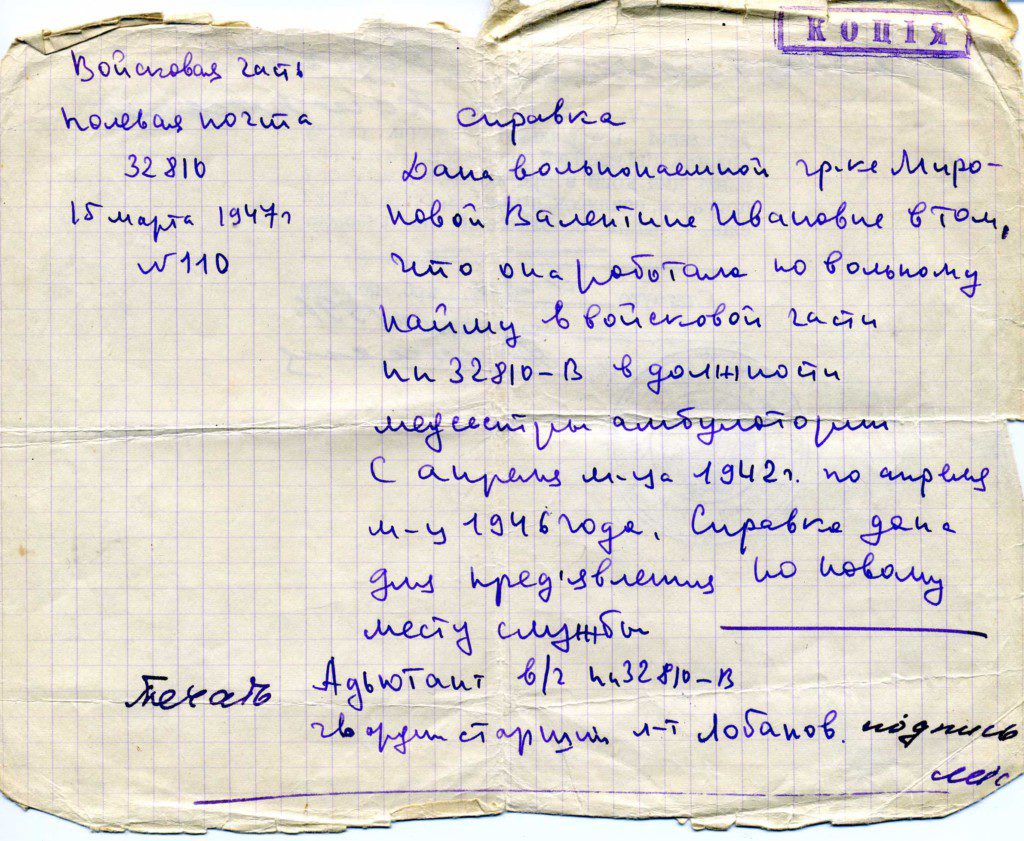 КОПІЯ
Войсковая часть
полевая почта
32810
15 марта 1947г
№110
Справка
Дана вольнонаемной гр-ке Миро-
новой Валентине Ивановне в том,
что она работала по вольному
найму в войсковой части
пп 32810-В в должности
медсестры амбулатории
С апреля м-ца 1942г. по апрель
м-ц 1946 года. Справка дана
для пред'явления по новому
месту службы
Адьютант в/ч пп32810-В
гвардии старший л-т Лобанов. подпись
Печать